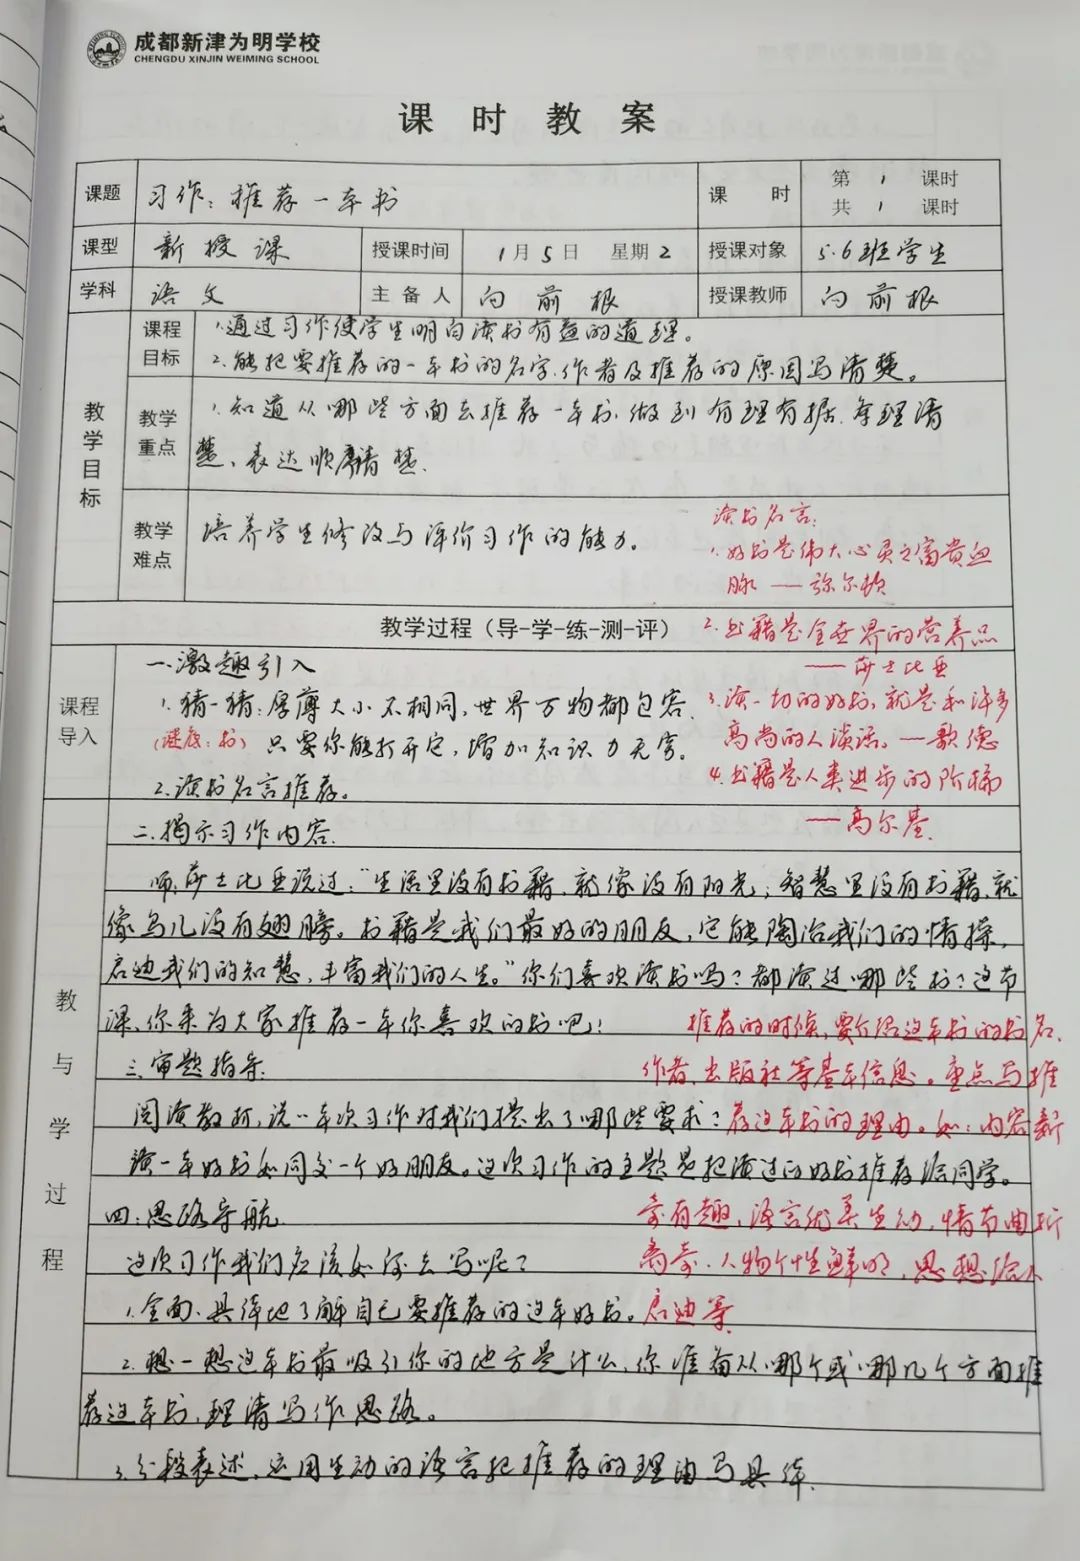 成都新津为明学校
CHENGDU XINJIN WEIMING SCHOOL
课时教案
课题 习作：推荐一本书 课时 第1课时 共1课时
课型 新授课 授课时间 1月5日 星期2 授课对象 5.6班学生
学科 语文 主备人 向前根 授课教师 向前根
教学目标
课程目标
1.通过习作使学生明白读书有益的道理。
2.能把要推荐的一本书的名字、作者及推荐的原因写清楚。
教学重点
1.知道从哪些方面去推荐一本书，做到有理有据、条理清
楚、表达顺序清楚.
教学难点
培养学生修改与评价习作的能力。
读书名言：
1.好书是伟大心灵之富贵血
脉 —— 弥尔顿
2.书籍是全世界的营养品
—— 莎士比亚
3.读一切的好书，就是和许多
高尚的人谈话。—歌德
4.书籍是人类进步的阶梯
——高尔基.
教学过程（导-学-练-测-评）
课程导入
一.激趣引入
1.猜一猜：厚薄大小不相同，世界万物都包容.
（谜底：书） 只要你能打开它，增加知识力无穷。
2.读书名言推荐。
教与学过程
二.揭示习作内容.
师：莎士比亚说过：“生活里没有书籍，就像没有阳光；智慧里没有书籍，就
像鸟儿没有翅膀。书籍是我们最好的朋友，它能陶冶我们的情操，
启迪我们的知慧，丰富我们的人生。”你们喜欢读书吗？都读过哪些书？这节
课，你来为大家推荐一本你喜欢的书吧！
推荐的时候，要介绍这本书的书名、
作者、出版社等基本信息。重点写推
荐这本书的理由。如：内容新
奇有趣，语言优美生动，情节曲折
离奇、人物个性鲜明，思想给人
启迪等
三.审题指导.
阅读教材，说一本次习作对我们提出了哪些要求？
读一本好书如同交一个好朋友。这次习作的主题是把读过的好书推荐给同学。
四.思路导航.
这次习作我们应该如何去写呢？
1.全面、具体地了解自己要推荐的这本好书。
2.想一想这本书最吸引你的地方是什么，你准备从哪个或哪几个方面推
荐这本书，理清写作思路。
3.分段表述，运用生动的语言把推荐的理由写具体.